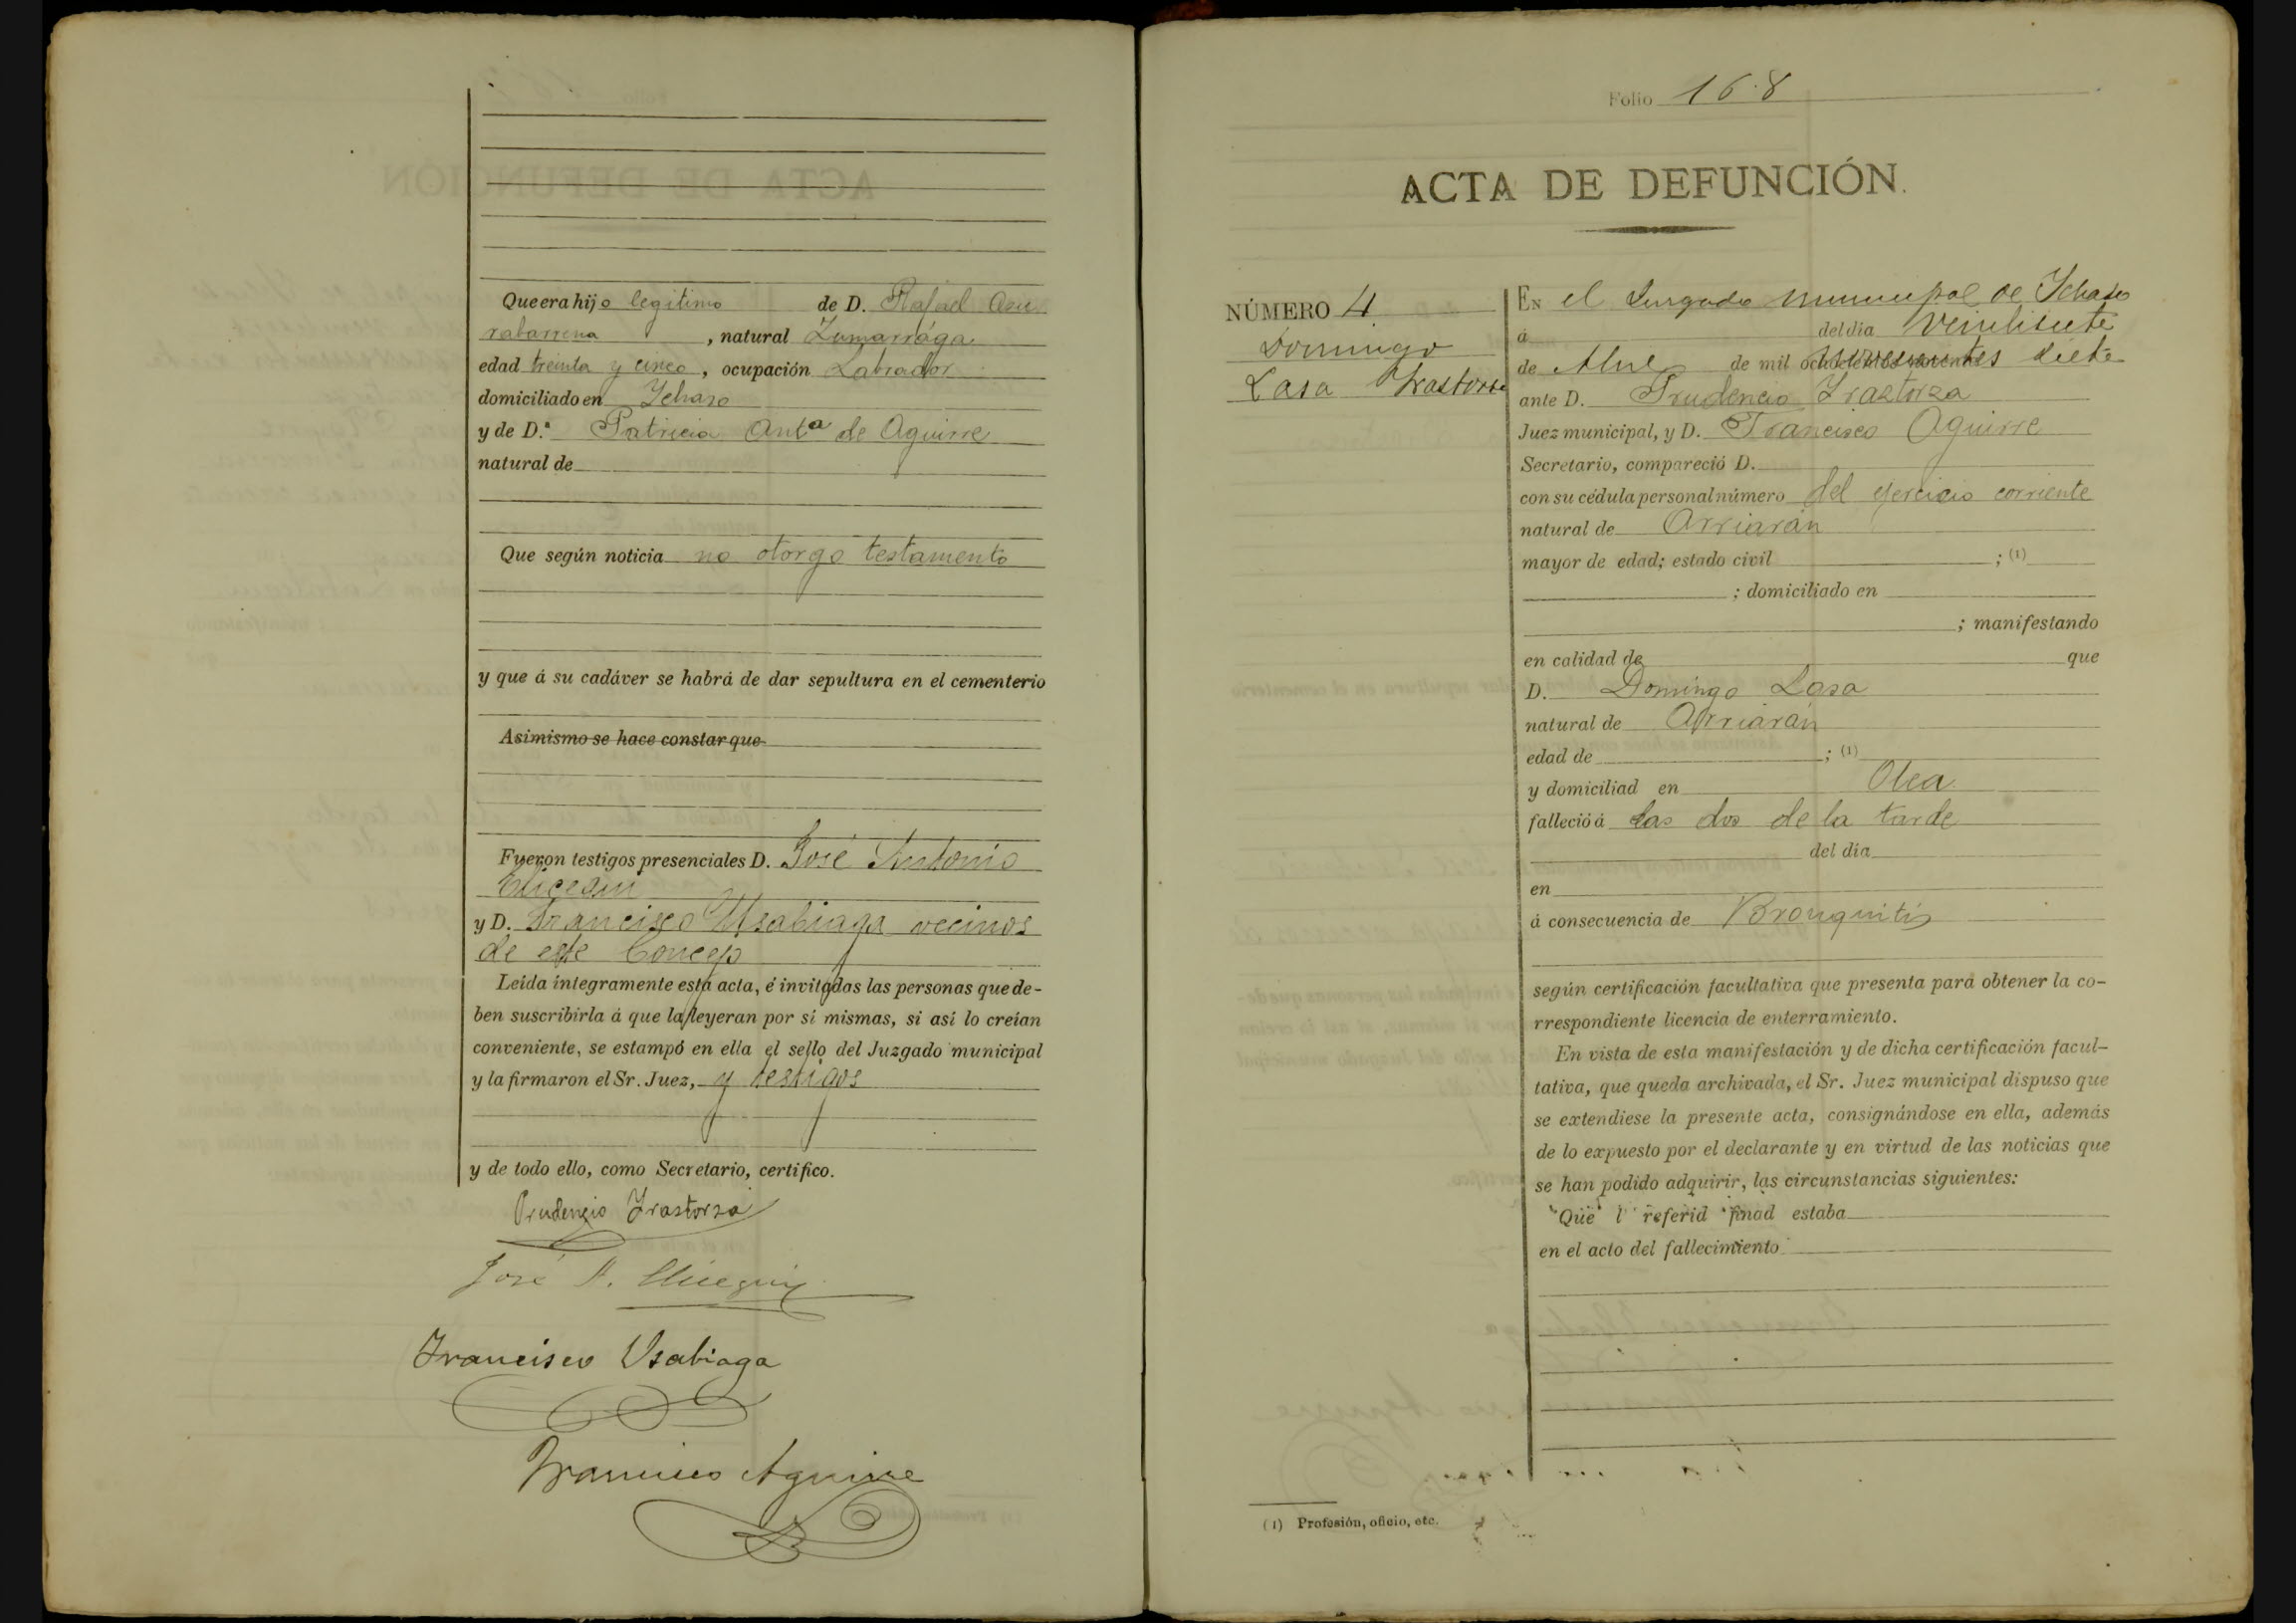 Que era hijo legitimo de D. Rafael Oru
rabarrena, natural Zumarrága
edad treinta y cinco, ocupación Labrador
domiciliado en Ichaso
y de D.ª Patricia Antª de Aguirre
natural de
Que según noticia no otorgo testamento
y que á su cadáver se habrá de dar sepultura en el cementerio
Asimismo se hace constar que
Fueron testigos presenciales D. José Antonio
y D. Francisco Usabiaga vecinos
de este Concejo
Leída íntegramente esta acta, é invitadas las personas que de-
ben suscribirla á que la leyeran por sí mismas, si así lo creían
conveniente, se estampó en ella el sello del Juzgado municipal
y la firmaron el Sr. Juez, y testigos
y de todo ello, como Secretario, certifico.
Prudencio Irastorza
José A.
Francisco Usabiaga
Francisco Aguirre
Folio 168
ACTA DE DEFUNCIÓN.
NÚMERO 4
Domingo
Lasa Irastorza
EN el Jurgado municipal de Ichaso
á del dia Veintisiete
de de mil ochocientos noventa novecientos siete
ante D. Prudencio Irastorza
Juez municipal, y D. Francisco Aguirre
Secretario, compareció D.
con su cédula personal número del ejercicio corriente
natural de Arriarán
mayor de edad; estado civil ; (1)
; domiciliado en
; manifestando
en calidad de que
D. Domingo Lasa
natural de Arriarán
edad de ; (1)
y domiciliad en Olea
falleció á las dos de la tarde
del día
en
á consecuencia de Bronquitis
según certificación facultativa que presenta para obtener la co-
rrespondiente licencia de enterramiento.
En vista de esta manifestación y de dicha certificación facul-
tativa, que queda archivada, el Sr. Juez municipal dispuso que
se extendiese la presente acta, consignándose en ella, además
de lo expuesto por el declarante y en virtud de las noticias que
se han podido adquirir, las circunstancias siguientes:
Que l referid finad estaba
en el acto del fallecimiento
(1) Profesión, oficio, etc.